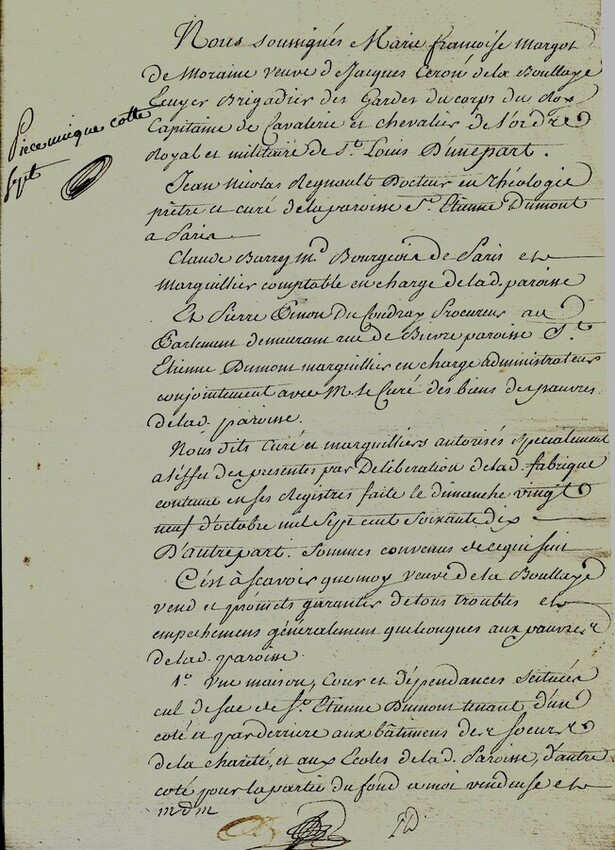 Nous soussignés Marie françoise Margot
de Moraine veuve de Jacques de la Boullaye
Ecuyer Brigadier des Gardes du corps du Roy
Capitaine de Cavalerie et chevalier de l'ordre
Royal et militaire de St. Louis D'unepart.
Piece unique cotte
Sept
Jean Nicolas Regnault Docteur en théologie
prêtre et curé de la paroisse St. Etienne Dumont
a Paris
Claude Barrey md. Bourgeois de Paris et
Marguillier comptable en charge de lad. paroisse
Et Pierre Du Coudray Procureur au
Parlement demeurant rue de Bievre paroisse St.
Etienne Dumont marguillier en charge administrateurs
conjointement avec M. le Curé des biens des pauvres
de lad. paroisse.
Nous dits Curé et marguilliers autorisés specialement
a l'effet des presentes par Deliberation de lad. fabrique
contenue en ses Registres faite le dimanche vingt
neuf d'octobre mil Sept cent Soixante dix
D'autrepart. Sommes convenus de ce qui suit
C'est à scavoir que moy veuve de la Boullaye
vend et promets garantir de tous troubles et
empechemens généralement quelconques aux pauvres
de lad. paroisse.
1o. une maison, Cour et dépendances scituées
cul de sac de St. Etienne Dumont tenant d'un
coté et par derriere aux bâtimens des soeurs
de la charité, et aux Ecoles de lad. Paroisse, d'autre
coté pour la partie du fond a moi vendeuse et